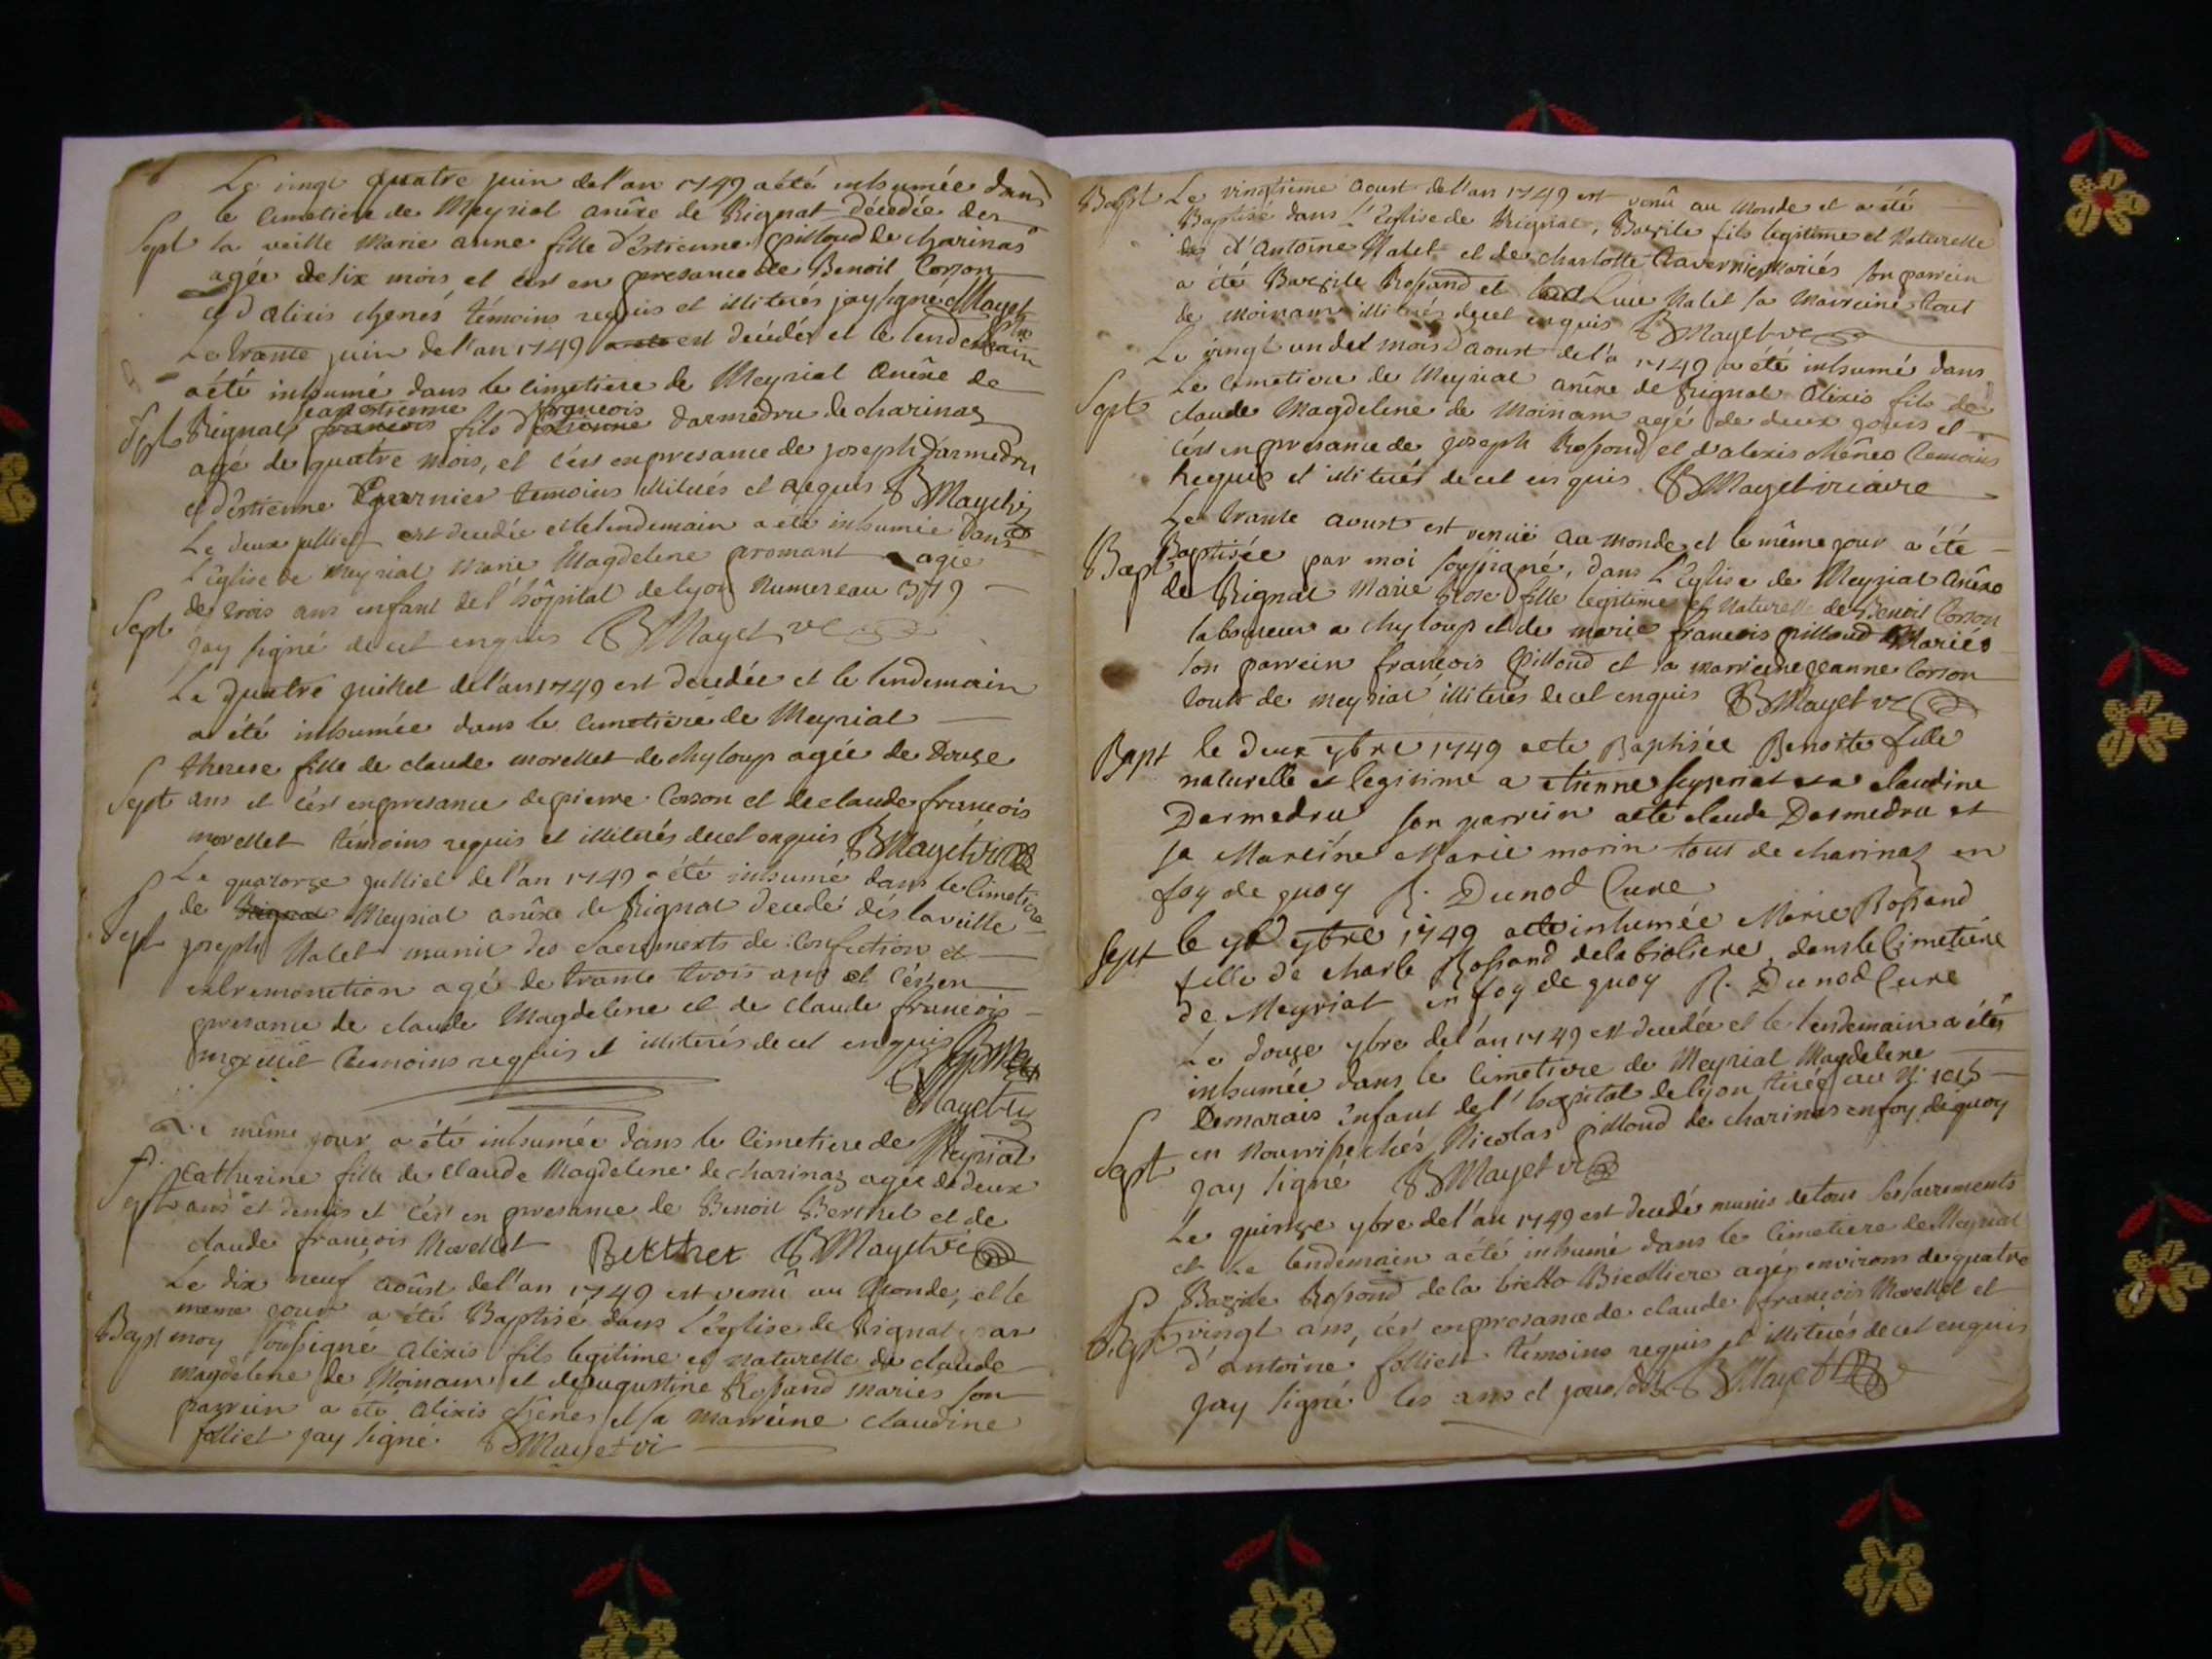 Le vingt quatre juin dell'an 1749 a été inhumée dans
le cimetiere de Meyriat anêxe de Rignat décedée des
Sept la veille Marie anne fille d'estienne pilloud de charinas
agée de six mois, et c'est en presance de Benoit Corson
et d'alixis chenés témoins requis et illiterés jay signé BMayet
Le trante juin dell'an 1749 est decédés et le lendemain
a été inhumé dans le cimetiere de Meyriat Anêxe de
jean estienne françois
Sept Rignat, francois fils d'estienne darmedru de charinaz
agé de quatre mois, et c'est en presance de joseph Darmedru
et d'estienne temoins illiterés et requis BMayet vi
Le deux julliet est decedée et le lendemain a été inhumée dans
l'Eglise de Meyriat Marie Magdelene promant agée
Sept de trois ans enfant de l'hôpital de lyon Numereau
jay signé de cet enquis BMayet vc
Le quatre juillet del'an 1749 est decedée et le lendemain
a été inhumée dans le cimetiere de Meyriat
therese fille de claude morellet de chyloup agée de Douze
Sept ans et c'est en presance de pierre Corson et de claude françois
morellet témoins requis et illiterés de cet enquis BMayet vi
Le quatorze julliet de l'an 1749 a été inhumé dans le cimetiere
de Rignat Meyriat anêxe de Rignat decedé dés la veille
Sept joseph Nalet munit des Sacrements de Confection et
extremonction agé de trante trois ans et c'est en
presance de claude Magdelene et de claude françois
morellet temoins requis et illiterés de cet enquis
BMayet vi
Le même jour a été inhumée dans le cimetiere de Meyriat
Catherine fille de Claude Magdelene de charinaz agée de deux
Sept ans et demis et c'est en presance de Benoit Berthet et de
claude françois Morellet Berthet BMayet vic
Le dix neuf août del'an 1749 est venû au Monde, et le
meme jour a été Baptisé dans l'église de Rignat par
Bapt moy soussigné Alexis fils legitime et naturelle de claude
Magdelene de Moinam et de augustine Rossand mariés son
parrein a été Alixis chenes et sa marreine claudine
folliet jay signé BMayet vi
Bapt Le vingtieme aoust dell'an 1749 est venû au Monde et a été
Baptisé dans L'Eglise de Rignat, Bazile fils legitime et Naturelle
d'Antoine Nalet et de charlotte Tavernier Mariés son parrein
a été Bazile Rossand et Nalet sa Marreine tout
de Moinam illiterés de cet enquis BMayet vc
Le vingt un del mois d'aoust del'a 1749 a été inhumé dans
Le cimetiere de Meyriat anêxe de Rignat Alixis fils de
Sept claude Magdelene de Moinam agé de deux jours et
c'est en presance de joseph Rossand et d'alexis chênes temoins
requis et illiterés de cet enquis BMayet vicaire
Le trante aoust est venuë au monde, et le même jour a été
Bapt Baptisée par moi soussigné, dans L'Eglise de Meyriat Anêxe
de Rignat Marie Rose fille legitime et Naturelle de Benoit Corson
laboureur a chyloup et de marie francois pilloud Mariés
son parrein françois pilloud et sa marreine jeanne Corson
touts de meyriat illiterés de cet enquis BMayet vc
Bapt le deux 7bre 1749 a ete Baptisée Benoite fille
naturelle et legitime a etienne et a claudine
Darmedru son parrein a ete claude Darmedru et
sa Mareine Marie morin tout de charinaz en
foy de quoy R. Dunod Cure
Sept le 7bre 1749 a ete inhumée Marie Rossand
fille de charle Rossand de la bioliere, dans le Cimetiere
de Meyriat en foy de quoy R. Dunod Cure
Le douze 7bre del'an 1749 est decedée et le lendemain a étés
inhumée dans le cimetiere de Meyriat Magdelene
Demarais Enfant de l'hopital de lyon tirée au N:
Sept en nourrisse chés Nicolas pilloud de charinas en foy de quoy
jay signé BMayet vi
Le quinze 7bre del'an 1749 est decedé munis de tous ses sacrements
et Le lendemain a été inhumé dans le cimetiere de Meyriat
Bazile Rossand de la Biolliere agé environs de quatre
Sept vingt ans, c'est en presance de claude françois Morellet et
d'antoine folliet témoins requis et illiterés de cet enquis
jay signé les ans et jours BMayet